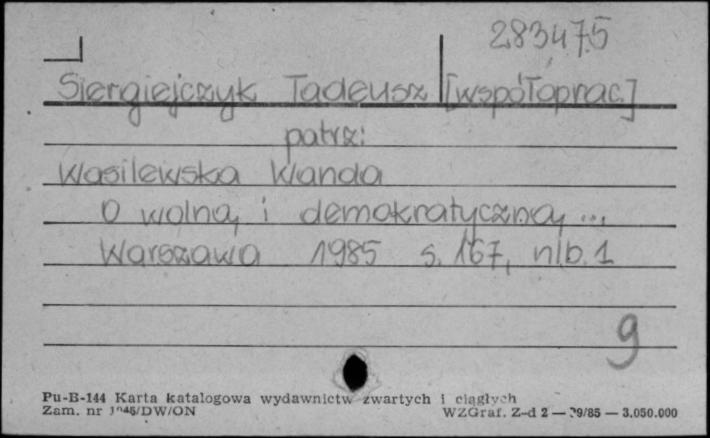 283475
Siergiejczyk Tadeusz [współoprac.]
patrz:
Wasilewska Wanda
O wolną i demokratyczną ...
Warszawa 1985 s. 167, nlb. 1
9
Pu-B-144 Karta katalogowa wydawnictw zwartych i ciągłych
Zam. nr /DW/ON WZGraf. Z-d 2 — /85 — 3.050.000